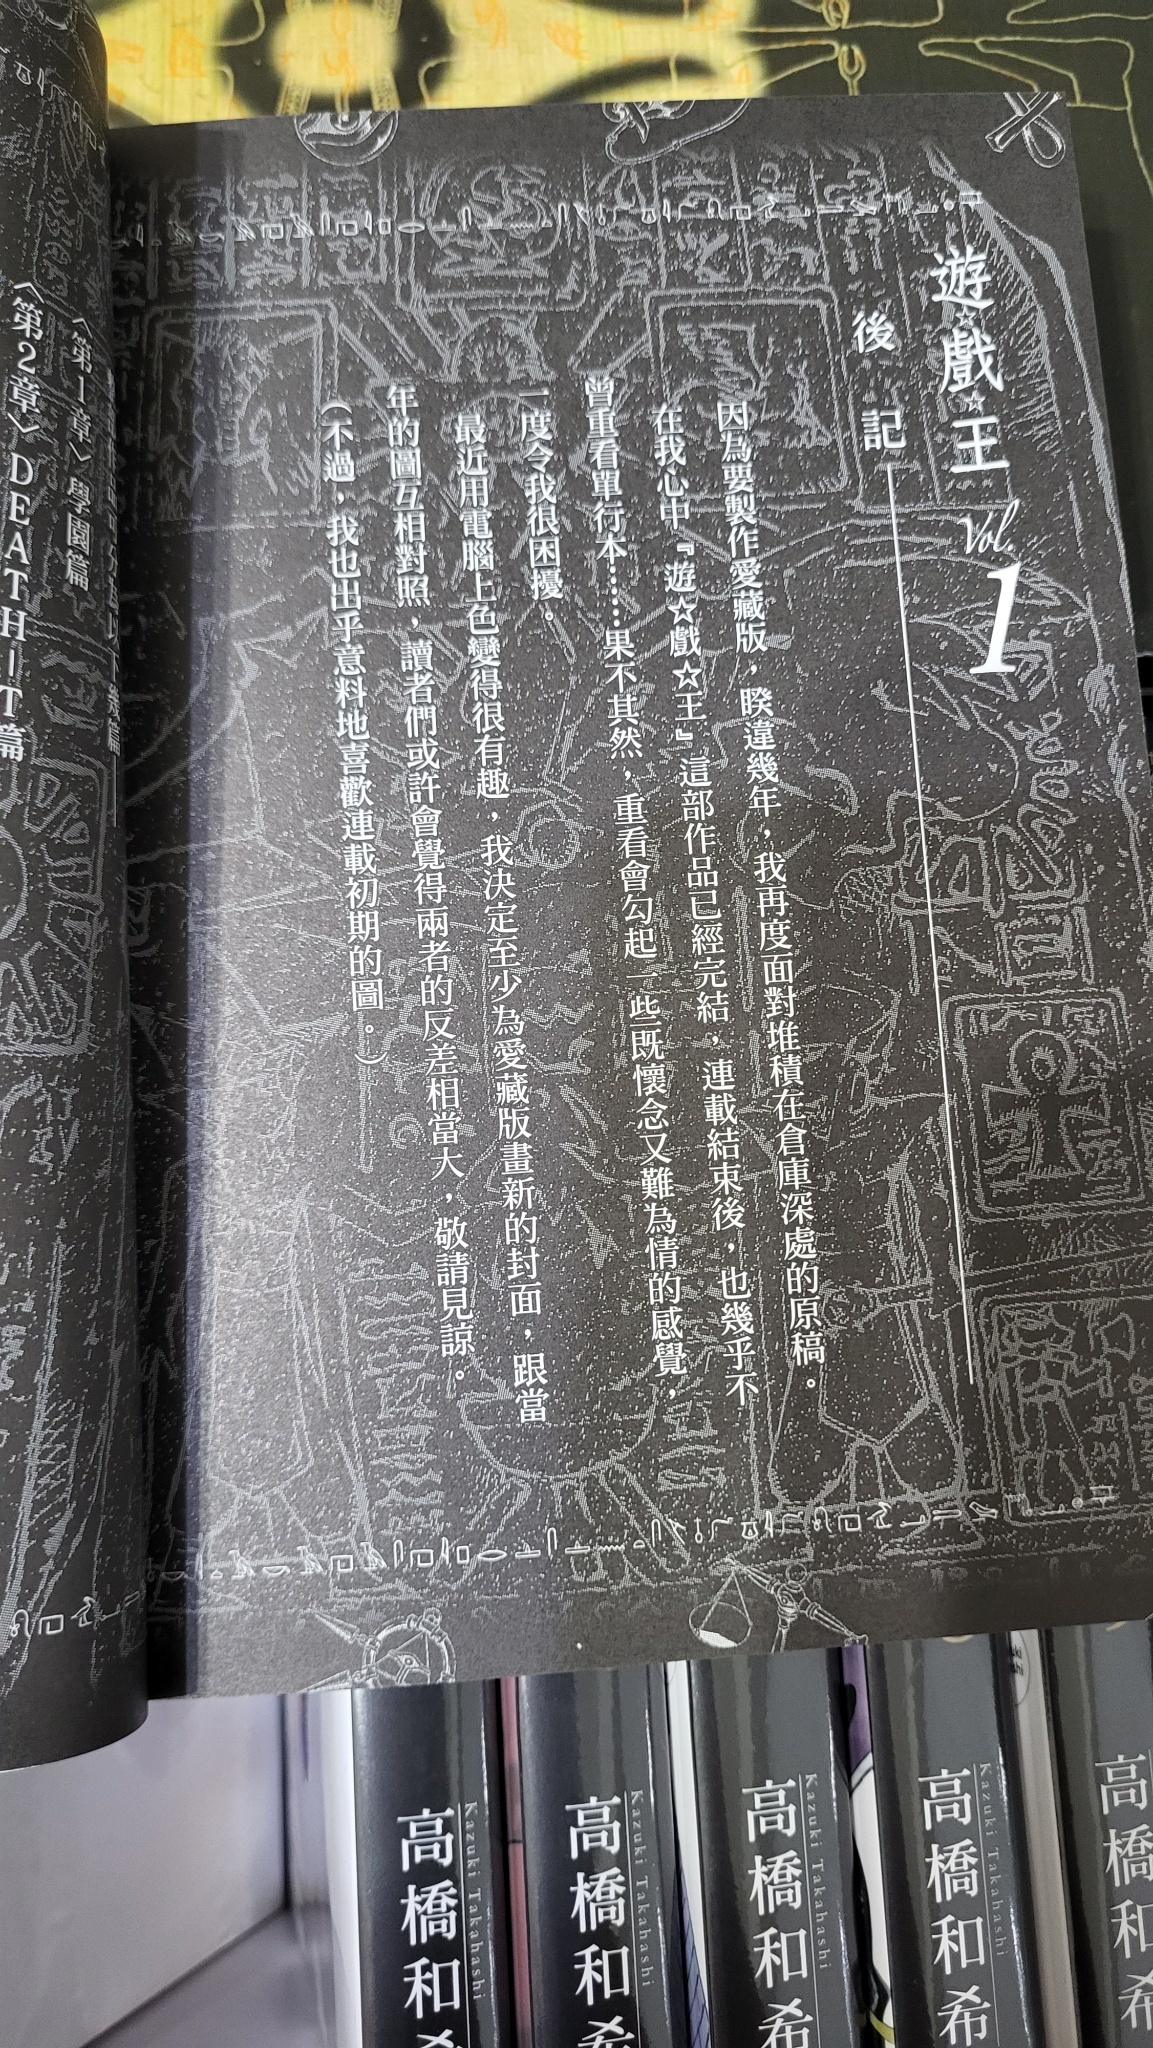 遊☆戲☆王 Vol. 1
後記
因為要製作愛藏版，睽違幾年，我再度面對堆積在倉庫深處的原稿。
在我心中『遊☆戲☆王』這部作品已經完結，連載結束後，也幾乎不
曾重看單行本……果不其然，重看會勾起一些既懷念又難為情的感覺，
一度令我很困擾。
最近用電腦上色變得很有趣，我決定至少為愛藏版畫新的封面，跟當
年的圖互相對照，讀者們或許會覺得兩者的反差相當大，敬請見諒。
（不過，我也出乎意料地喜歡連載初期的圖。）
〈第1章〉學園篇
〈第2章〉DEATH-T篇
高橋和希
Kazuki Takahashi
高橋和希
Kazuki Takahashi
高橋和希
Kazuki Takahashi
高橋和希
Kazuki Takahashi
高橋和希